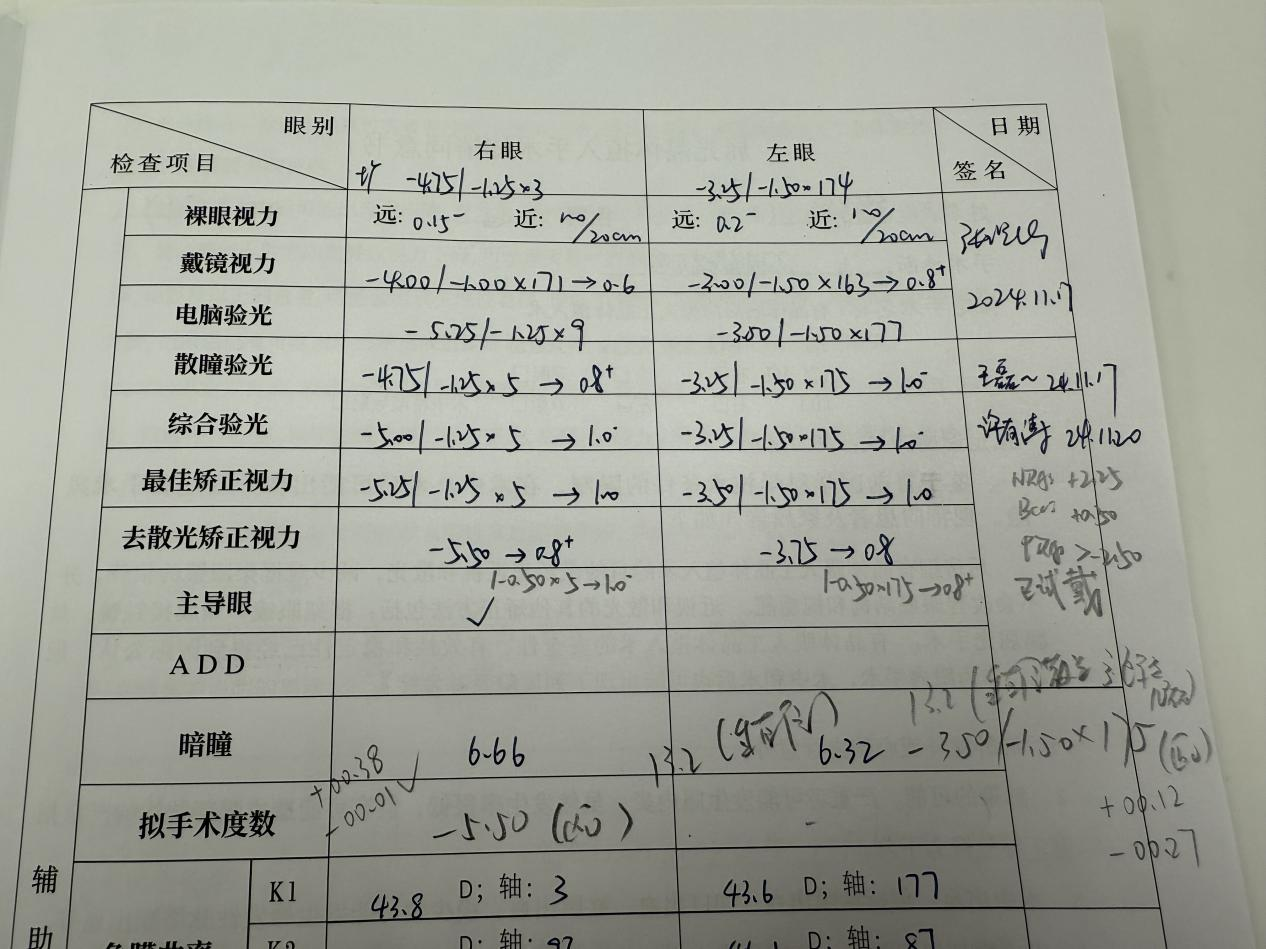 眼别 右眼 左眼 日期
检查项目 签名
-4.75/-1.25×3 -3.25/-1.50×174
裸眼视力 远: 0.15⁻ 近: /20cm 远: 0.2⁻ 近: /20cm
戴镜视力 -4.00/-1.00×171→0.6 -3.00/-1.50×163→0.8⁺
2024.11.17
电脑验光 -5.25/-1.25×9 -3.50/-1.50×177
散瞳验光 -4.75/-1.25×5→0.8⁺ -3.25/-1.50×175→1.0⁻ 王磊 24.11.17
综合验光 -5.00/-1.25×5→1.0⁻ -3.25/-1.50×175→1.0⁻ 24.11.20
最佳矫正视力 -5.25/-1.25×5→1.0 -3.50/-1.50×175→1.0 +2.25
+0.50
去散光矫正视力 -5.50→0.8⁺ -3.75→0.8 -2.50
/-0.50×5→1.0⁻ /-0.50×175→0.8⁺ 试戴
主导眼 ✓
ADD
13.2
暗瞳 6.66 13.2 6.32 -3.50/-1.50×175
+00.38 +00.12
-00.01✓ -00.27
拟手术度数 -5.50 -
辅助
K1 43.8 D; 轴: 3 43.6 D; 轴: 177
K2 D; 轴: D; 轴: 87